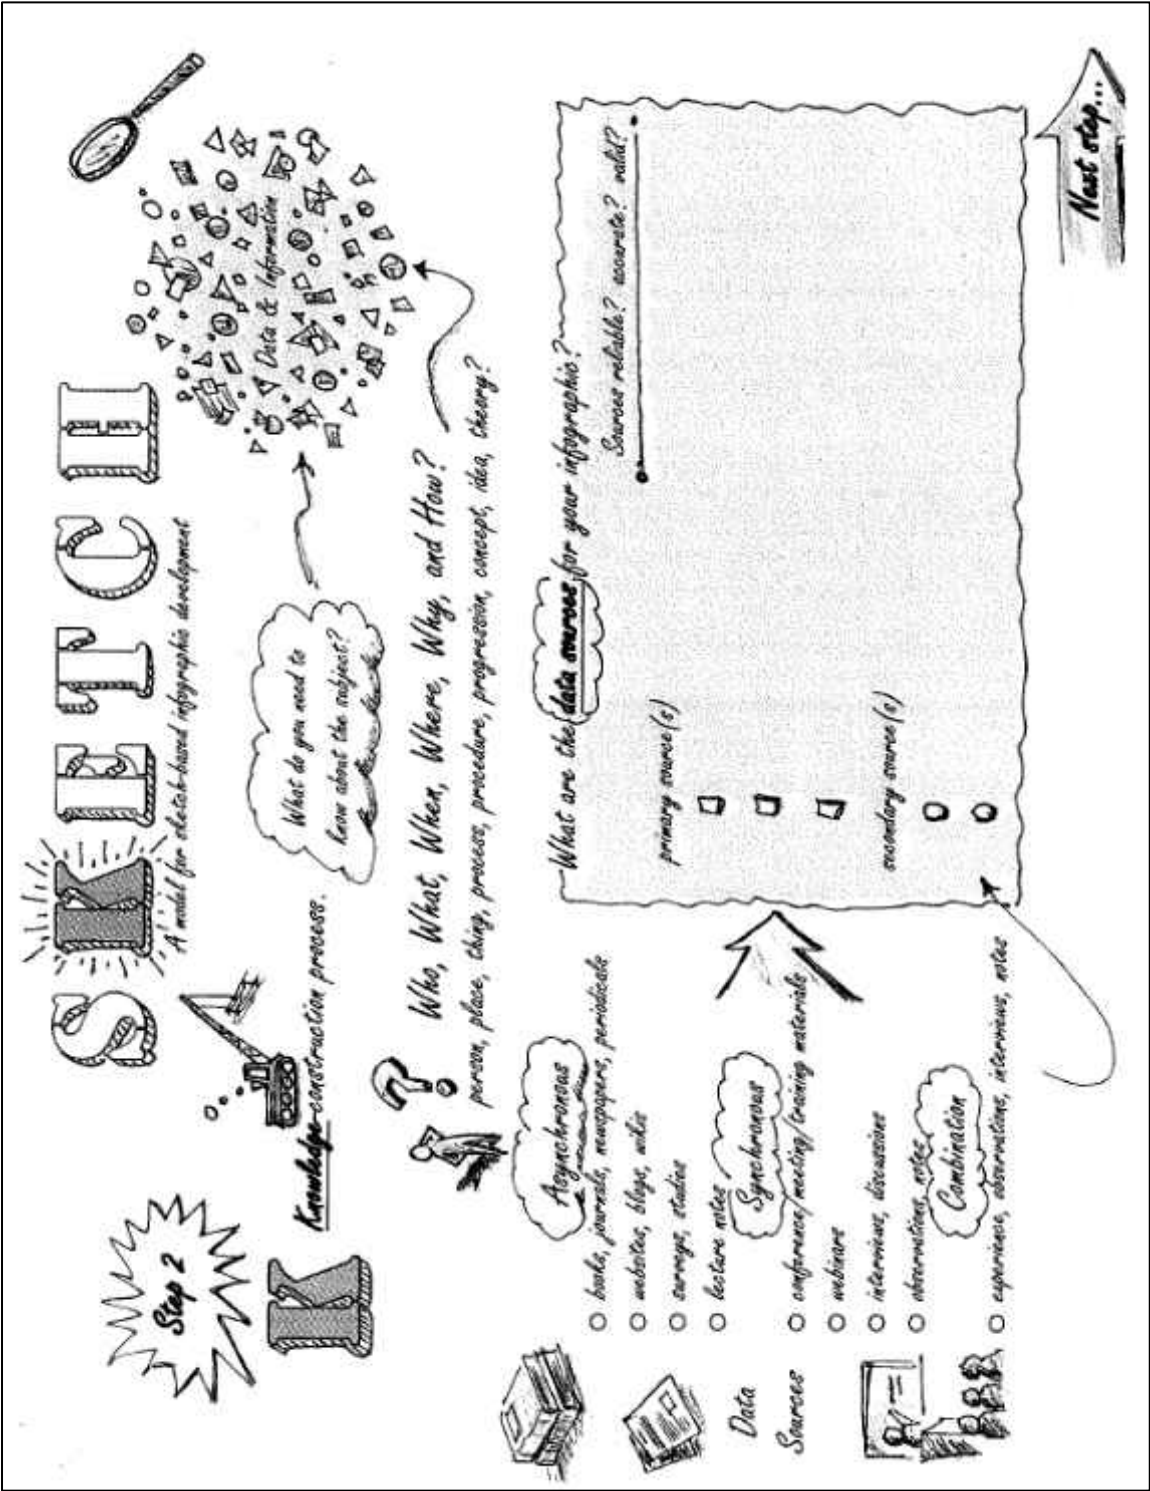 SKETCH
A model for sketch-based infographic development
Step 2
K
Knowledge-construction process.
What do you need to
know about the subject?
Data & Information
Who, What, When, Where, Why, and How?
person, place, thing, process, procedure, progression, concept, idea, theory?
Asynchronous
books, journals, newspapers, periodicals
websites, blogs, wikis
surveys, studies
lecture notes
Data
Sources
Synchronous
conference/meeting/training materials
webinars
interviews, discussions
observations, notes
Combination
experience, observations, interviews, notes
What are the data sources for your infographic?
Sources reliable? accurate? valid?
primary source(s)
secondary source(s)
Next step...